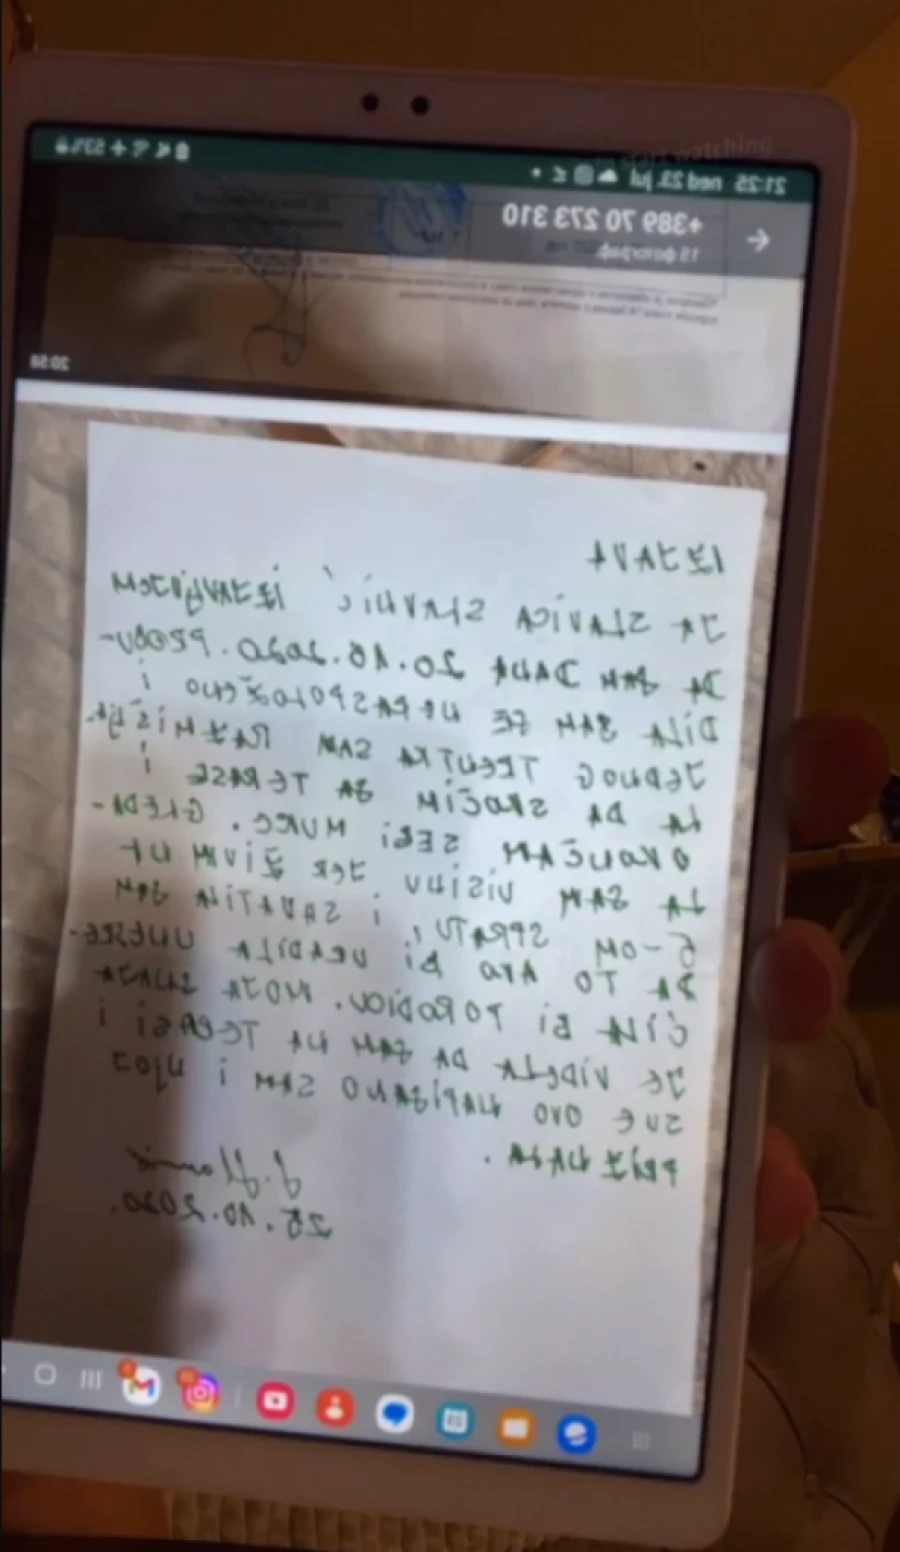 21:25 ned 23. jul
53%
+389 70 273 310
15 фотограф.
20:58
IZJAVA
JA SLAVICA SLAVNIĆ, IZJAVLJUJEM
DA SAM DANA 20.10.2020. PROBU-
DILA SAM SE NERASPOLOŽENO I
JEDNOG TRENUTKA SAM RAZMIŠLJA-
LA DA SKOČIM SA TERASE I
OKONČAM SEBI MUKE. GLEDA-
LA SAM VISINU JER ŽIVIM NA
6-OM SPRATU, I SHVATILA SAM
DA TO AKO BI URADILA UNESRE-
ĆILA BI PORODICU. MOJA SNAJA
JE VIDELA DA SAM NA TERASI I
SVE OVO NAPISANO SAM I NJOJ
PRIZNALA.
25.10.2020.